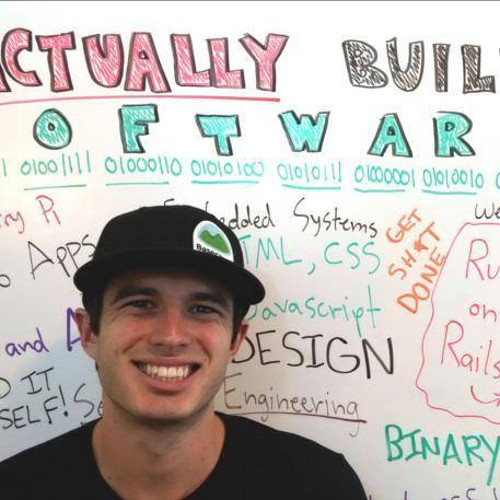 ACTUALLY BUIL
OFTWAR
1 01001111 01000110 01010100 01010111 01000001 01010010 0
rry Pi
Embedded Systems
We
Apps
HTML, CSS
GET
SH*T
DONE
Ru
on
Rails
Javascript
and A
DESIGN
D IT
SELF!
Se
Engineering
BINARY